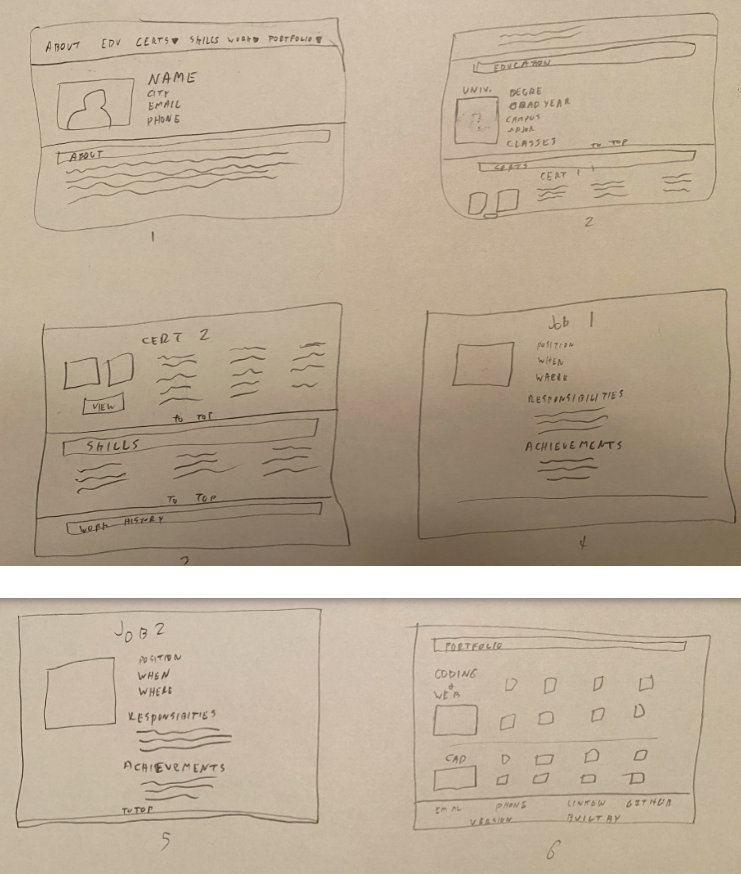 ABOUT EDU CERTS▼ SKILLS WORK▼ PORTFOLIO▼
NAME
CITY
EMAIL
PHONE
ABOUT
1
EDUCATION
UNIV.
DEGRE
GRAD YEAR
CAMPUS
MAJOR
CLASSES
TO TOP
CERTS
CERT 1
2
CERT 2
VIEW
TO TOP
SKILLS
TO TOP
WORK HISTORY
3
Job 1
POSITION
WHEN
WHERE
RESPONSIBILITIES
ACHIEVEMENTS
4
JOB 2
POSITION
WHEN
WHERE
RESPONSIBITIES
ACHIEVEMENTS
TO TOP
5
PORTFOLIO
CODING
&
WEB
CAD
EMAIL PHONE LINKDN GITHUB
VERSION BUILT BY
6